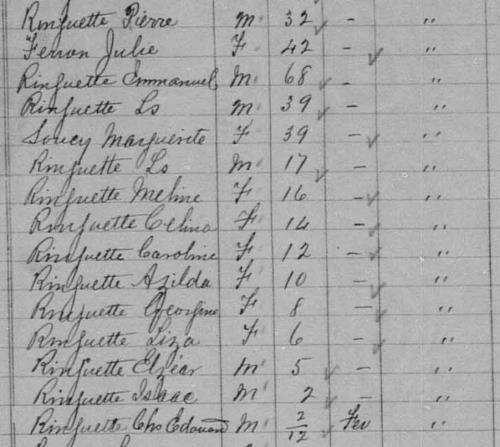 Ringuette Pierre M 32 - "
Ferron Julie F 42 - "
Ringuette Emmanuel M 68 - "
Ringuette Ls M 39 - "
Soucy Marguerite F 39 - "
Ringuette Ls M 17 - "
Ringuette Meline F 16 - "
Ringuette Celina F 14 - "
Ringuette Caroline F 12 - "
Ringuette Azilda F 10 - "
Ringuette Georgine F 8 - "
Ringuette Liza F 6 - "
Ringuette Elzéar M 5 - "
Ringuette Isaac M 2 - "
Ringuette Chs Edouard M 2/12 Fev "